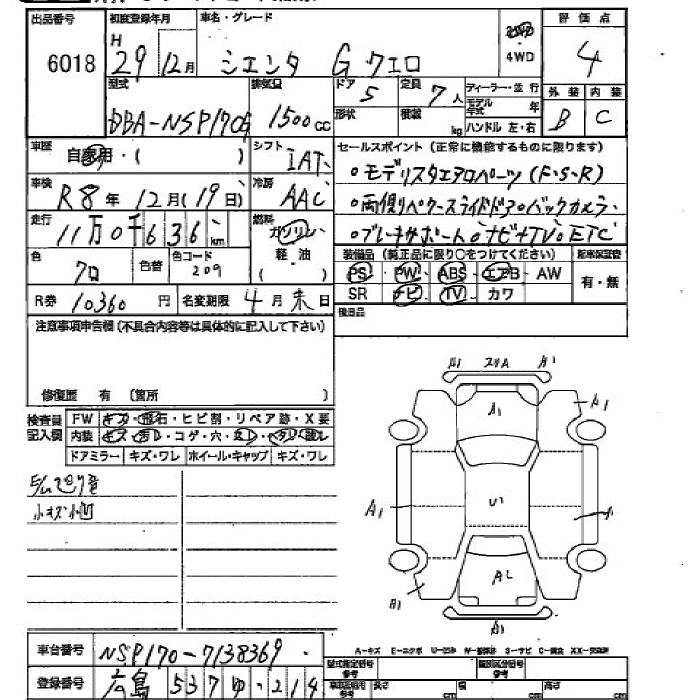 出品番号 初度登録年月 車名・グレード 評価点
6018 H 29年 12月 シエンタ G クエロ 2WD 4WD 4
型式 排気量 ドア 定員 ディーラー・並行 外装 内装
DBA-NSP170G 1500cc 5 7人 モデル年式 年 B C
形状 積載 kg ハンドル 左・右
車歴 自家用・( ) シフト IAT セールスポイント(正常に機能するものに限ります)
○モデリスタエアロパーツ(F・S・R)
車検 R8年 12月(19日) 冷房 AAC ○両側パワースライドドア○バックカメラ
走行 11万0千636km 燃料 ガソリン 軽油 ( ) ○ブレーキサポート○ナビ+TV○ETC
色 クロ 色替 色コード 209 装備品(純正品に限り○をつけてください) 新車保証書
PS PW ABS エアB AW 有・無
R券 10360円 名変期限 4月末日 SR ナビ TV カワ
注意事項申告欄(不具合内容等は具体的に記入して下さい) 後日品
修復歴 有 〔箇所 〕
検査員記入欄 FW キズ・飛石・ヒビ割・リペア跡・X要
内装 キズ・汚れ・コゲ・穴・
ドアミラー キズ・ワレ ホイール・キャップ キズ・ワレ
小キズ小凹
A1 A1
A1 A1
A1 U1
A1
A1
車台番号 NSP170-7138369
A-キズ E-エクボ
型式指定番号 参考 類別区分番号 参考
登録番号 広島 537 ゆ・214
参考 長さ cm 幅 cm 高さ cm